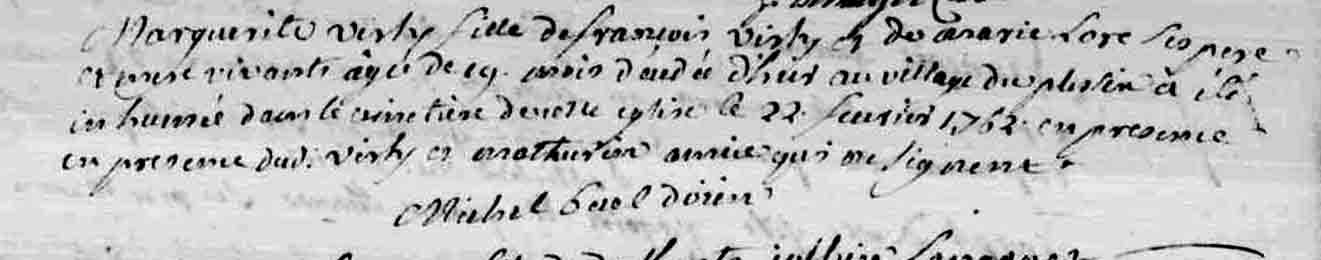 Marguerite visly fille de françois visly et de marie Lore ses pere
et mere vivants âgée de 19. mois décédée d'hier au village du plessix à été
inhumée dans le cimetière de notre eglise le 22. fevrier 1762. en presence
en presence dud. visly et mathurin amice qui ne signent.
Michel doien